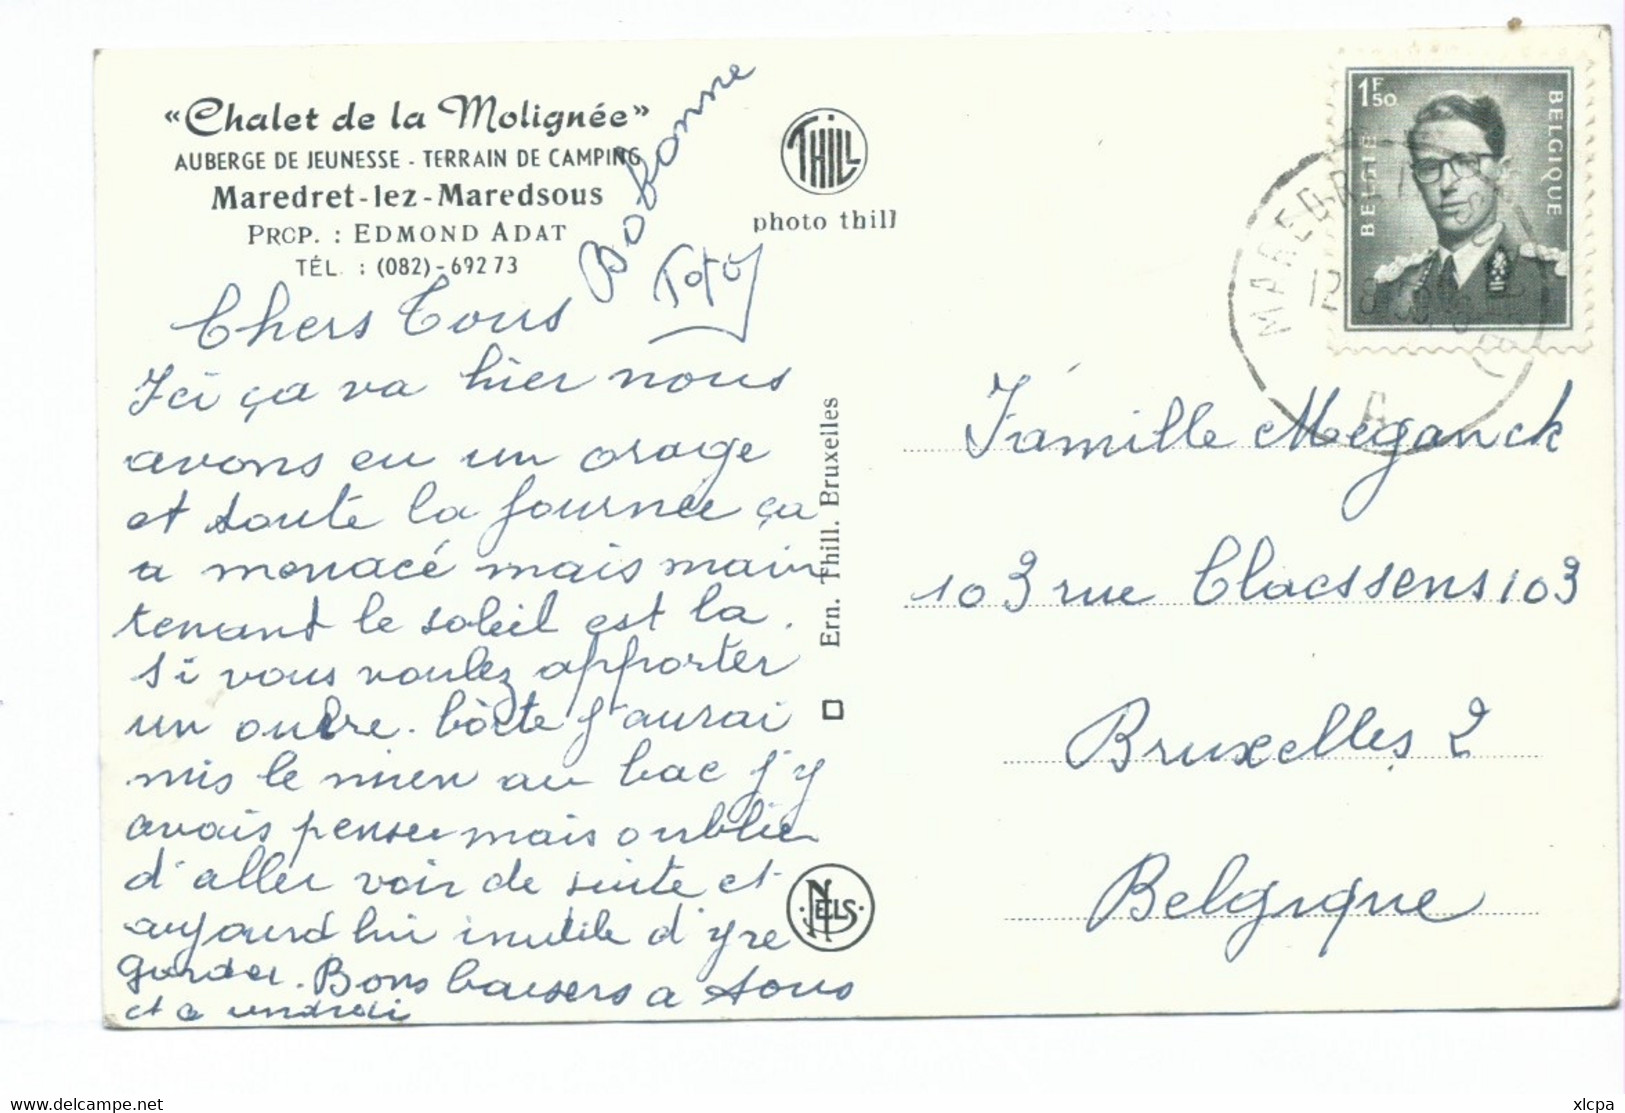 «Chalet de la Molignée»
AUBERGE DE JEUNESSE - TERRAIN DE CAMPING
Maredret-lez-Maredsous
PROP. : EDMOND ADAT
TÉL. : (082)-69273
Bobonne
Toto
THILL
photo thill
Chers Tous
Ici ça va hier nous
avons eu un orage
et toute la journée ça
a menacé mais main
tenant le soleil est la.
Si vous voulez apporter
un outre. boîte j'aurai
mis le mien au bac j'y
avais penser mais oublier
d'aller voir de suite et
aujourd hui inutile d'y re
garder. Bons baisers a tous
et a vendredi
Ern. Thill. Bruxelles
NELS
1F50
BELGIE
BELGIQUE
MAREDRET
12
A
Famille Meganck
103 rue Claessens 103
Bruxelles 2
Belgique
delcampe.net
xlcpa